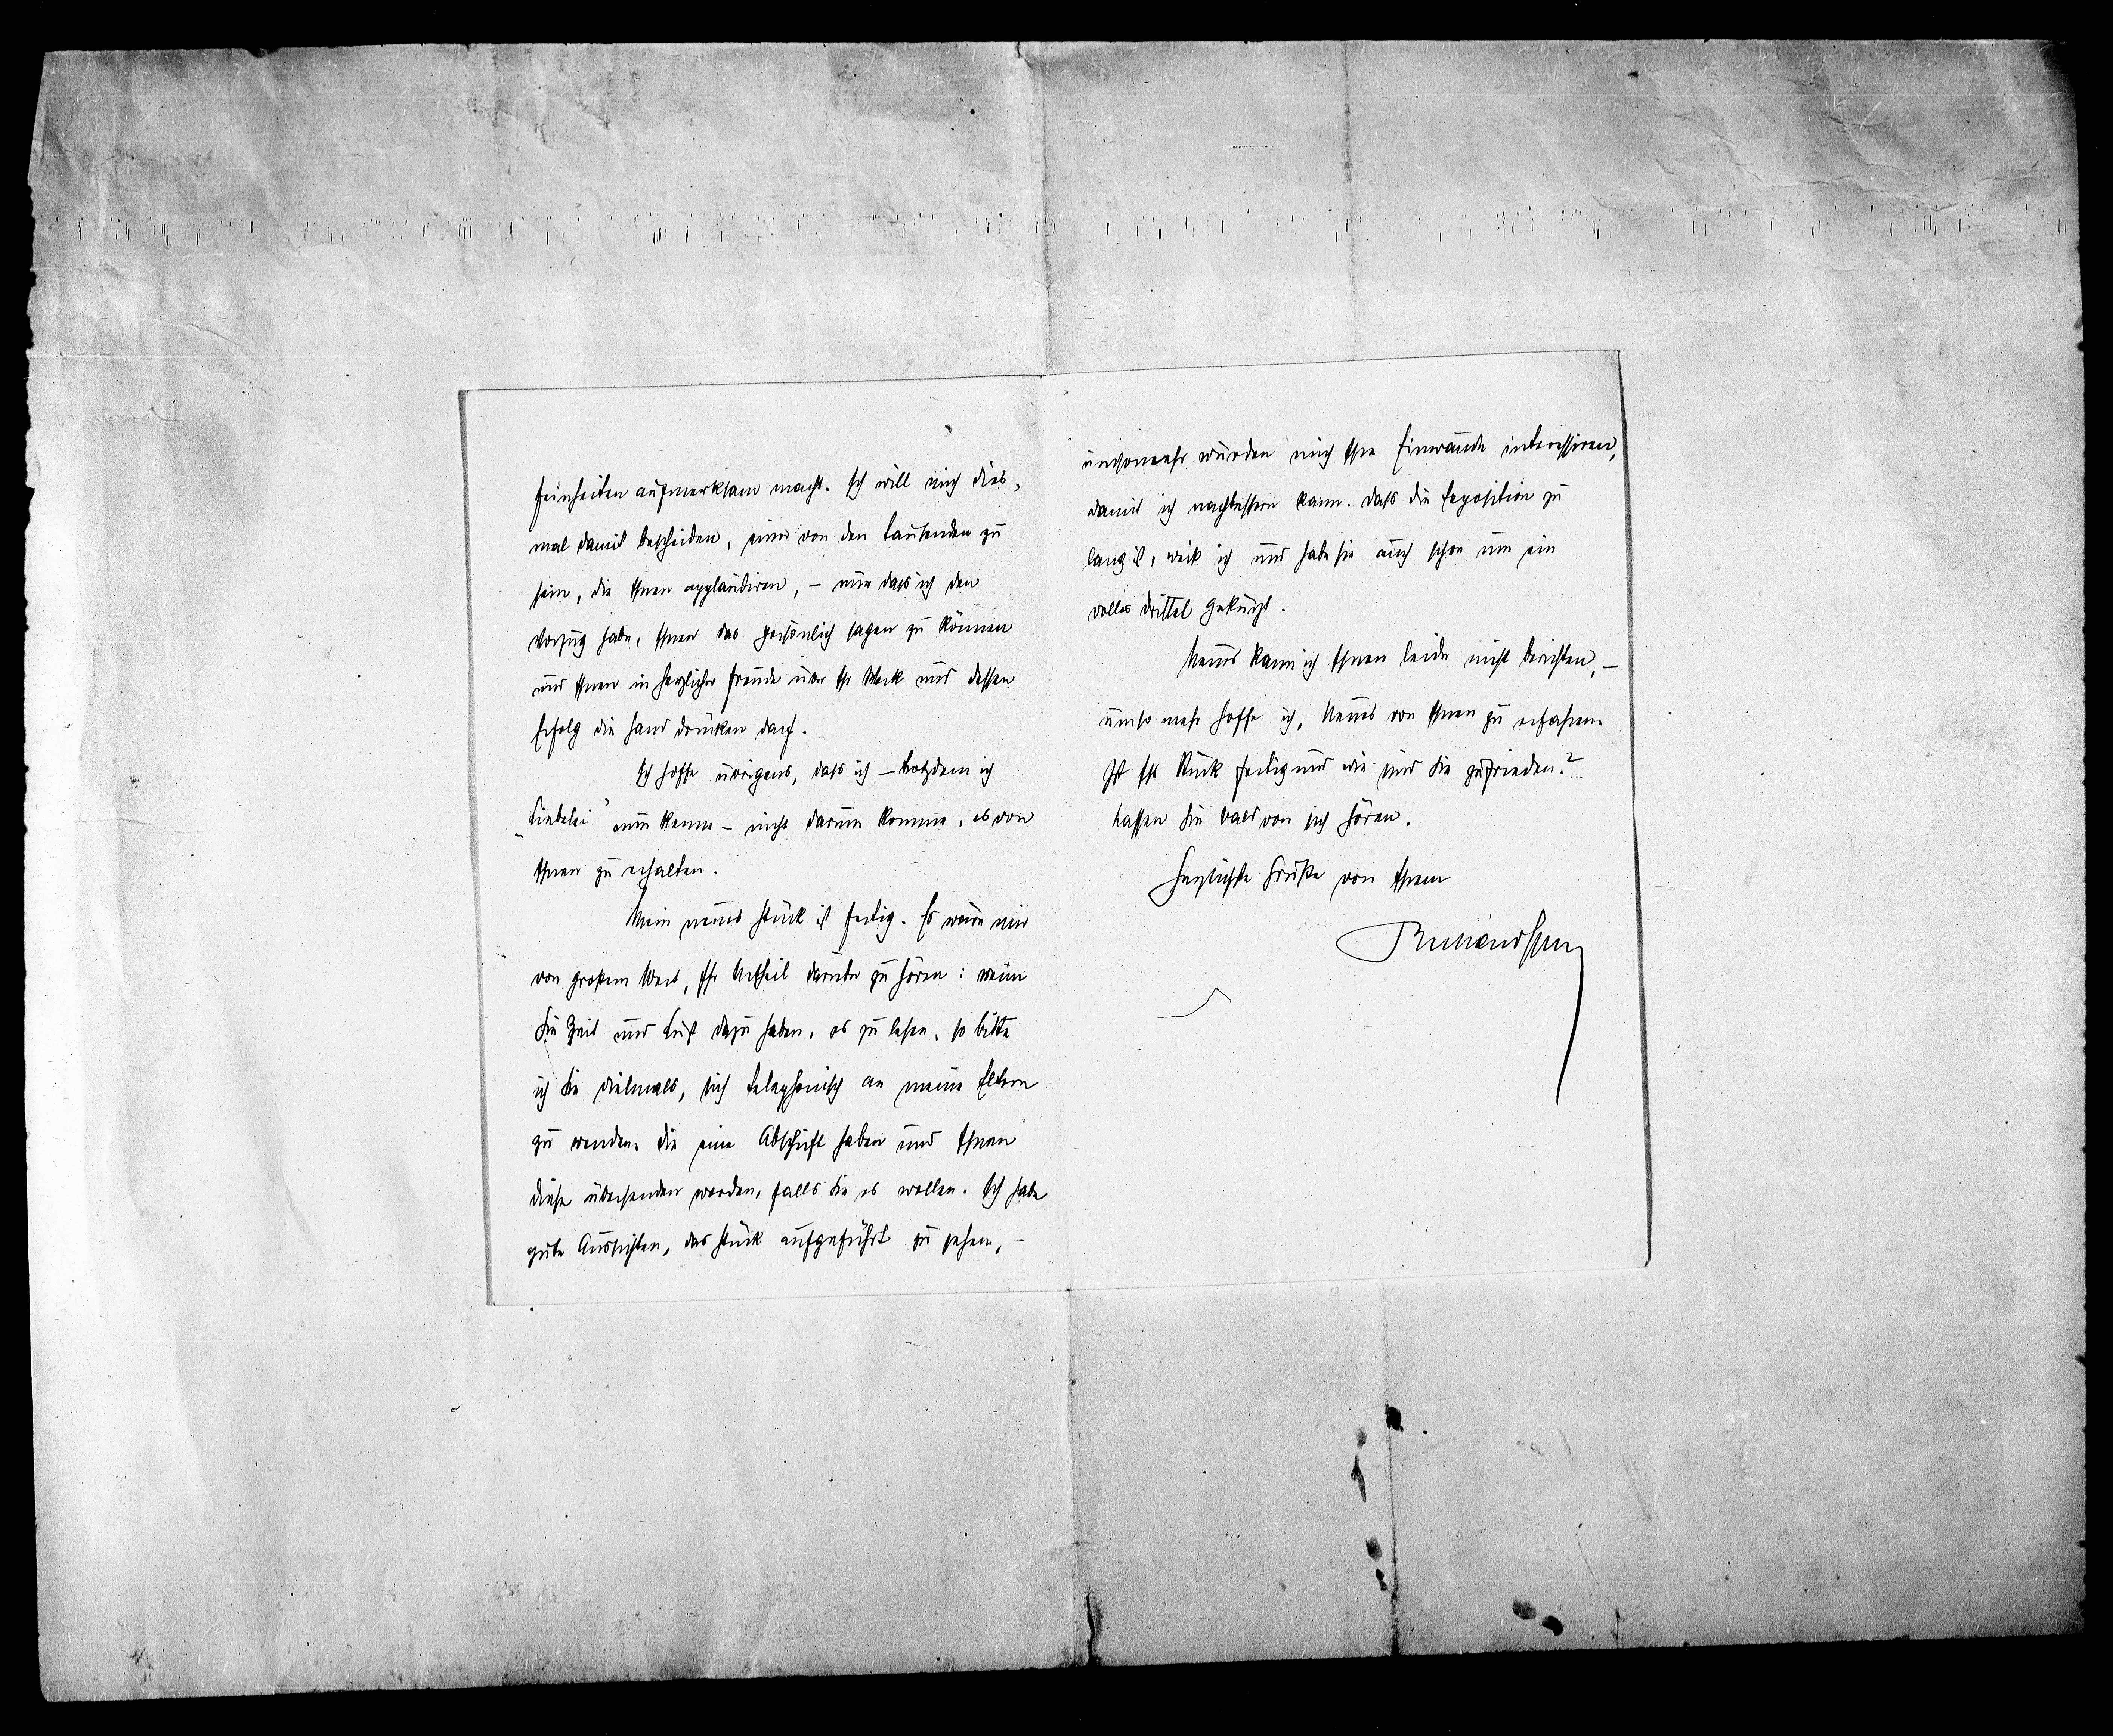 Feinheiten aufmerksam macht. Ich will mich dies-
mal damit bescheiden, einer von den Tausenden zu
sein, die Ihnen applaudiren, – nur dass ich den
Vorzug habe, Ihnen das persönlich sagen zu können
und Ihnen in herzlicher Freude über Ihr Werk und dessen
Erfolg die Hand drücken darf.
Ich hoffe übrigens, dass ich – trotzdem ich
„Liebelei" nun kenne – nicht darum komme, es von
Ihnen zu erhalten.
Mein neues Stück ist fertig. Es wäre mir
von großem Wert, Ihr Urtheil darüber zu hören: wenn
Sie Zeit und Lust dazu haben, es zu lesen, so bitte
ich Sie vielmals, sich telephonisch an meine Eltern
zu wenden, die eine Abschrift haben und Ihnen
diese übersenden werden, falls Sie es wollen. Ich habe
gute Aussichten, das Stück aufgeführt zu sehen, –
umsomehr würden mich Ihre Einwände interessiren,
damit ich nachbessern kann. Dass die Exposition zu
lang ist, weiß ich und habe sie auch schon um ein
volles Drittel gekürzt.
Neues kann ich Ihnen leider nicht berichten, –
umso mehr hoffe ich, Neues von Ihnen zu erfahren.
Ist Ihr Stück fertig und wie sind Sie zufrieden?
Lassen Sie bald von sich hören.
Herzlichste Grüße von Ihrem